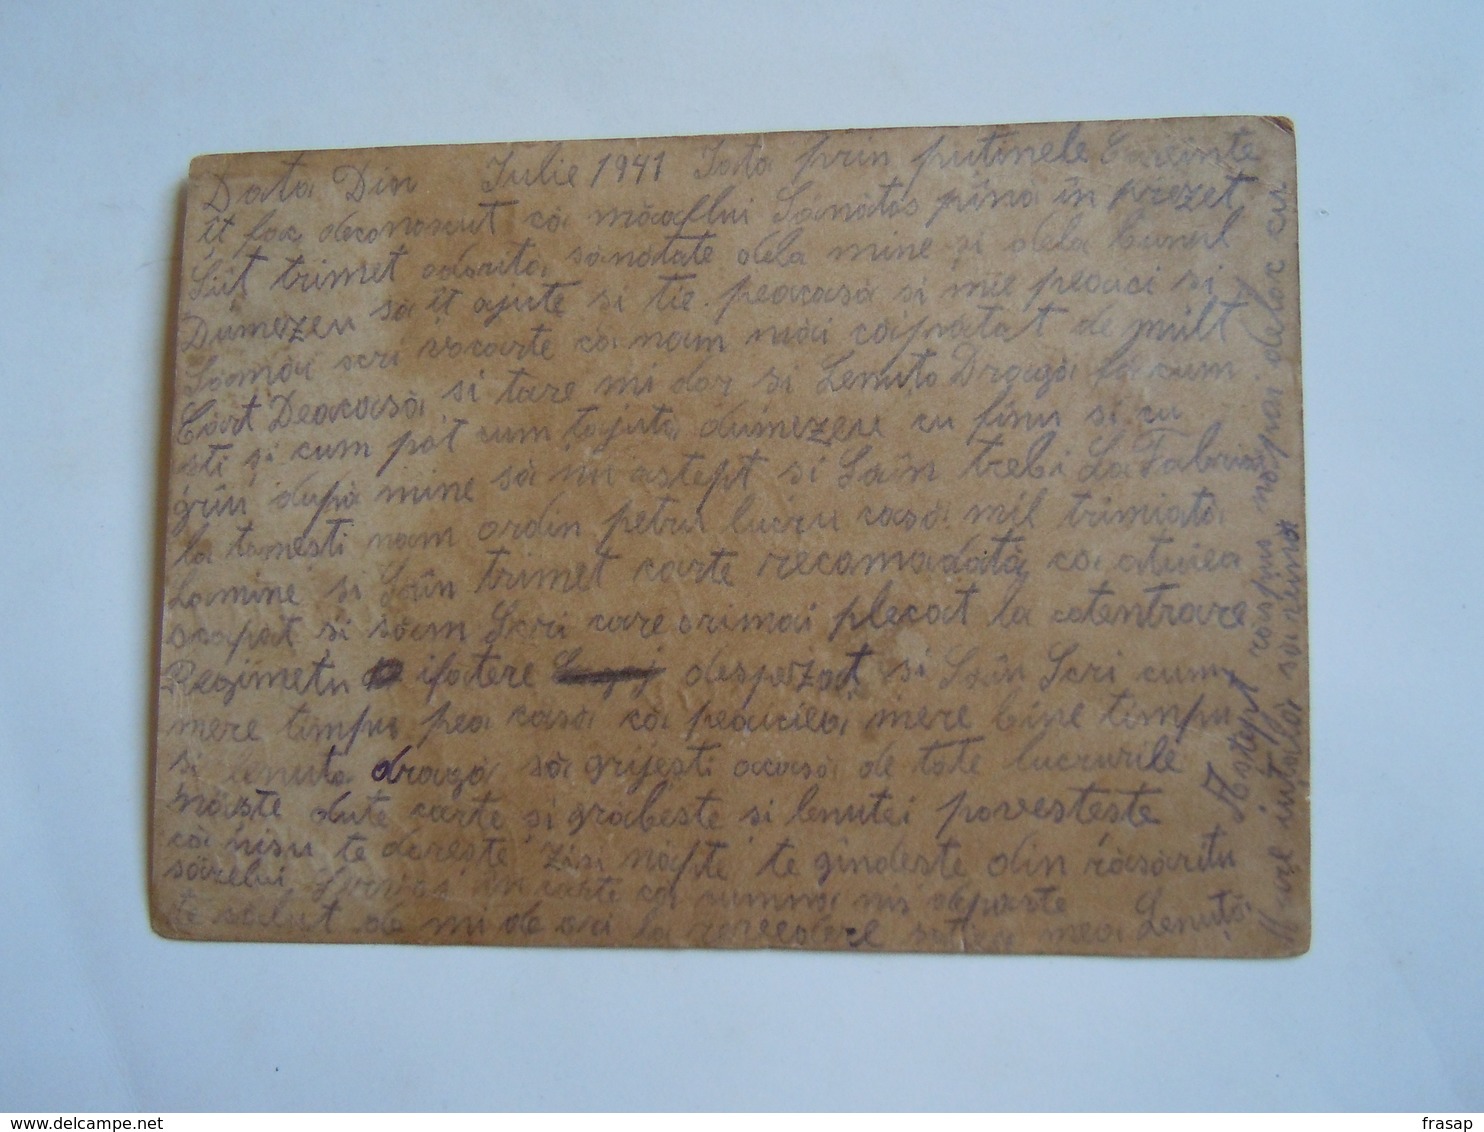 Data Din Iulie 1941 Iata prin putinele Cuvinte
it fac deconoscut că măaflui Sănătos pînă în prezet
Siit trimet odorită sănătate dela mine și dela bunul
Dumezeu să it ajute si tie peacasă si mie peaici si
Sămăi scri vocarte că nam măi căpătat de mult
Cart Deacasă si tare mi dor si Lenuto Dragă fa cum
sti și cum pot cum tajuta dumezeu cu finu si cu
griu după mine să nu astept si Săîn trebi La Fabrică
la tamești nam ordin petru lucru casă mil trimiată
Lamine si Săîn trimet carte recomadată ca atuiea
scapat și săam Scri care orimai plecat la catentrare
Regimetu ifatere despezat si Săîn Scri cum
mere timpu pea casă că peaicica mere bine timpu
si lenuta dragă să grijești acasă de tate lucrurile
naste dute carte și grabeste si lenutei povesteste
că nisu te dereste zisi năpte te gindeste din răsăritu
sărelui în carte ca inima nis departe
te salut de mi de ori la revedere sotiea mea Lenuță
Astept răspus năpai deloc cu
Mare intalăi să reină
frasap